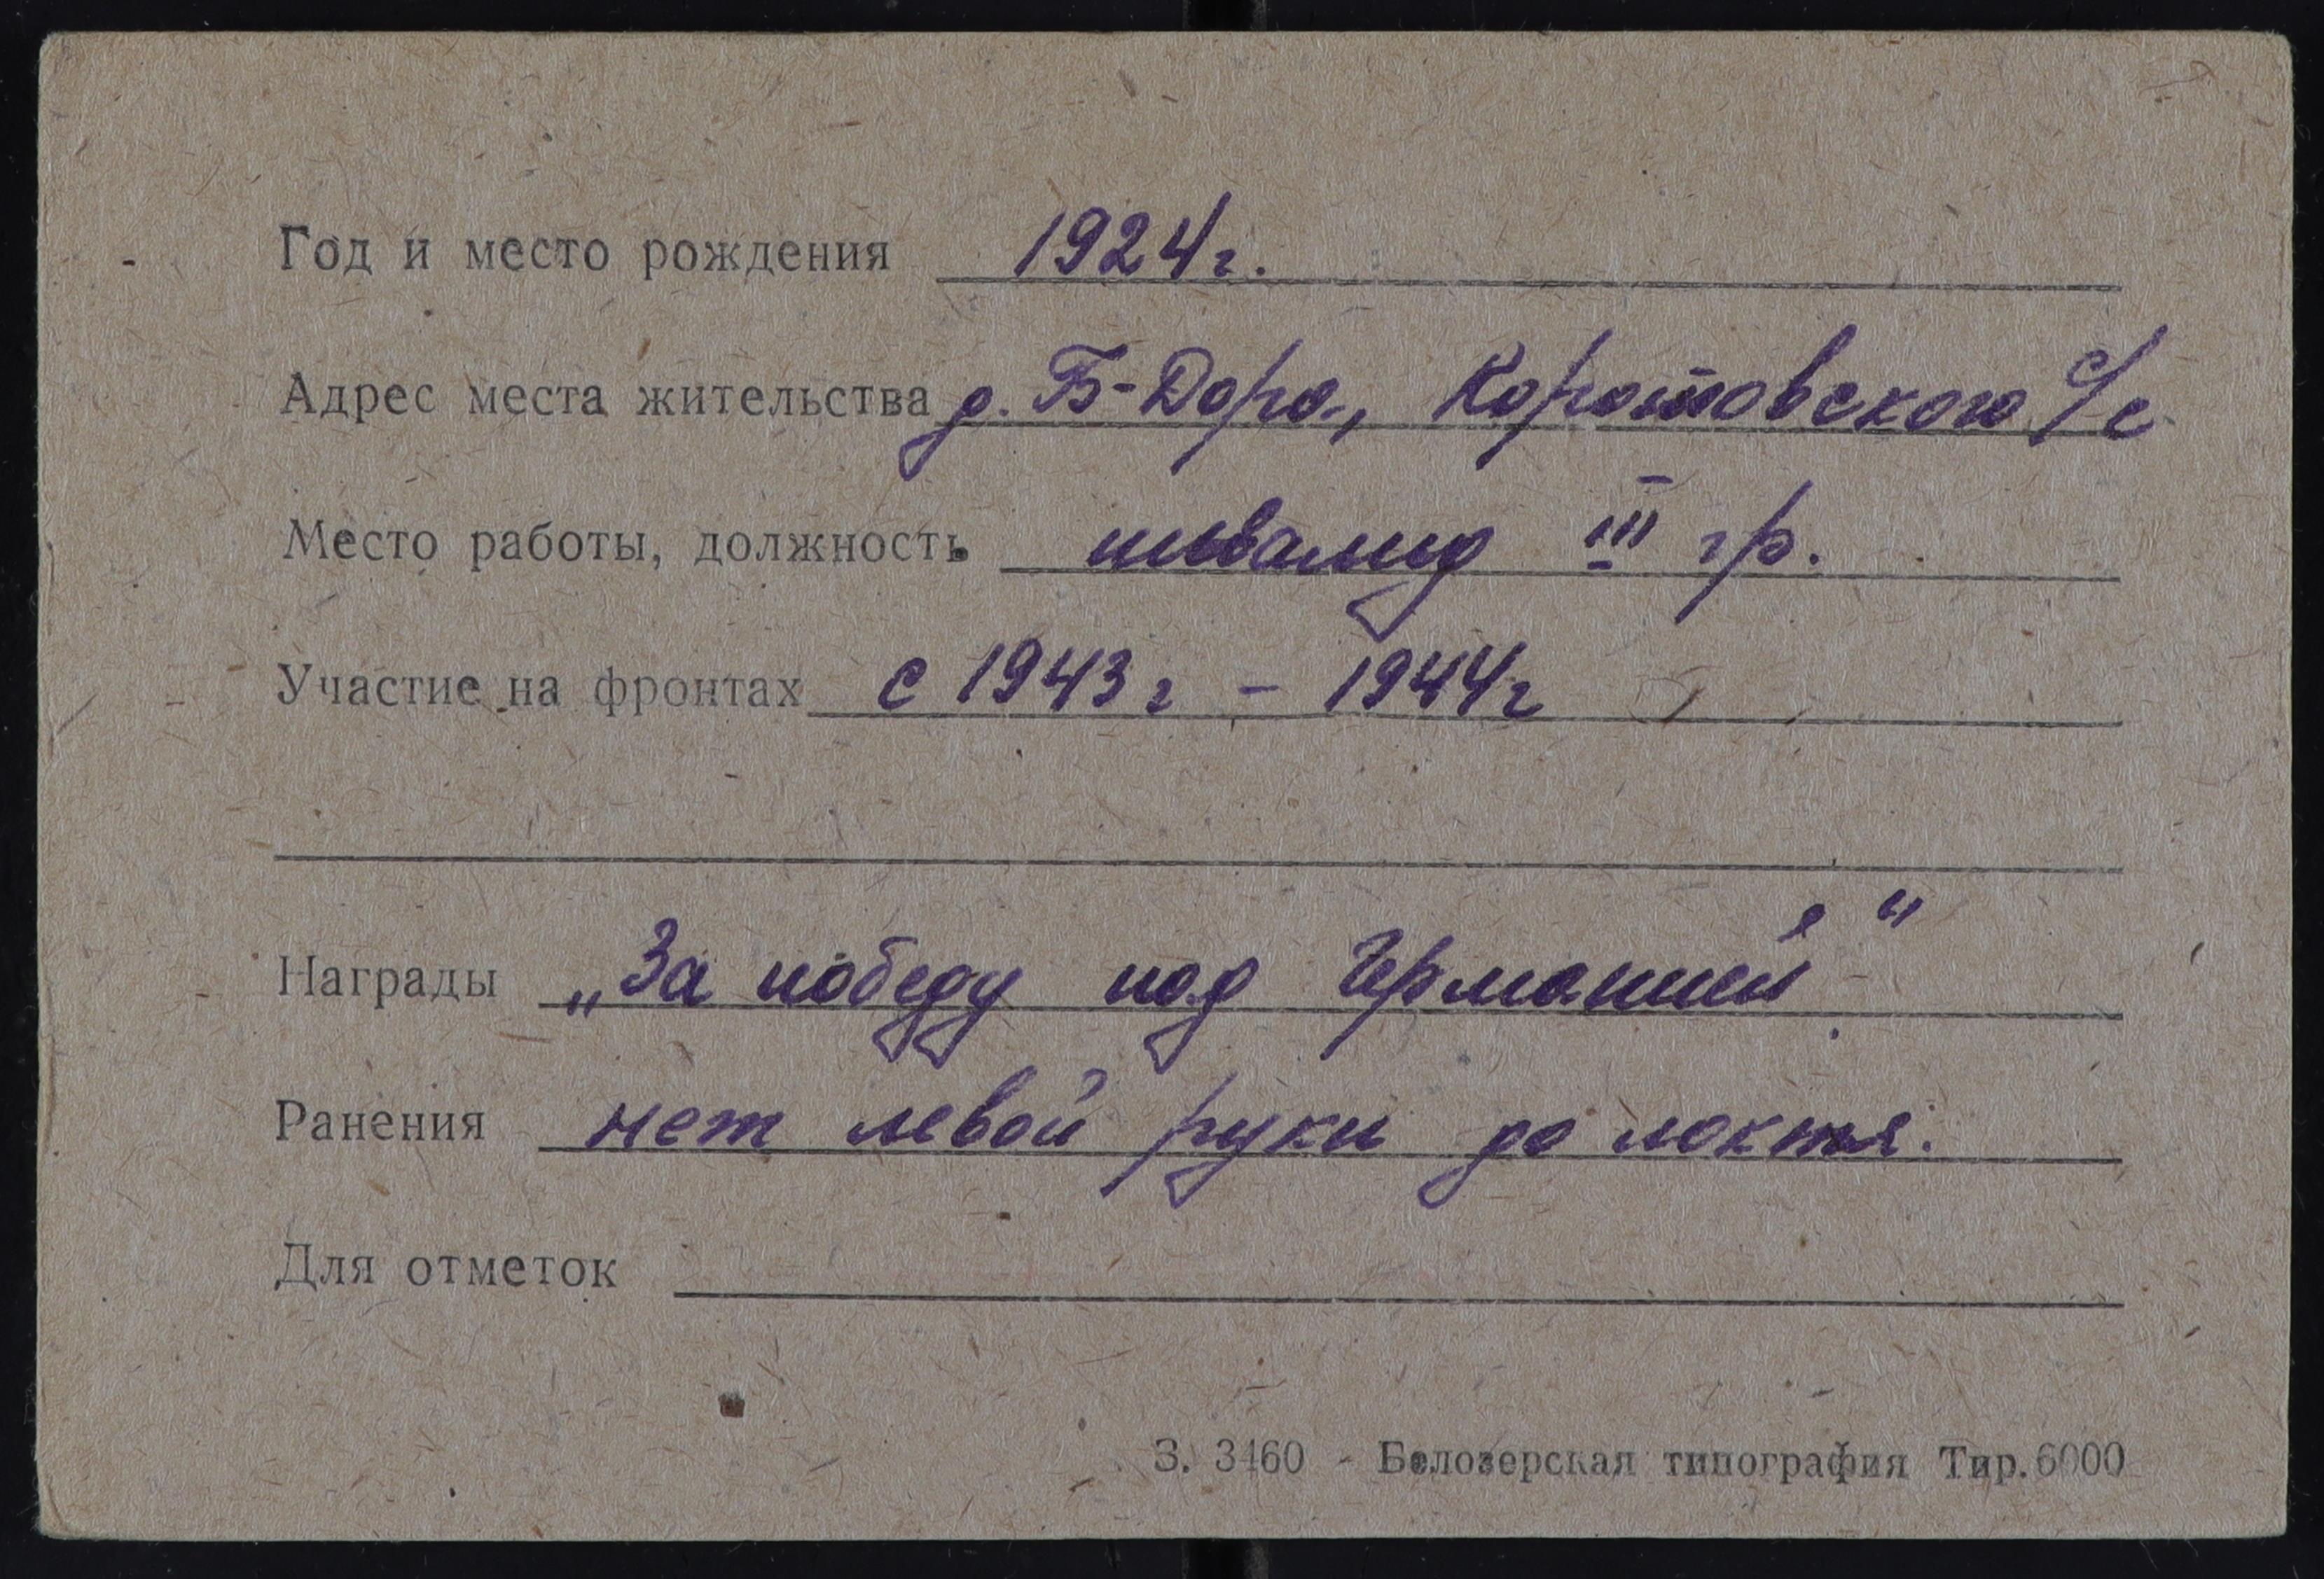 Год и место рождения 1924г.
Адрес места жительства д. Б-Дора, Коротовского с/с
Место работы, должность инвалид III гр.
Участие на фронтах с 1943г - 1944г
Награды „За победу под Германией“
Ранения нет левой руки до локтя.
Для отметок
З. 3460 - Белозерская типография Тир. 6000